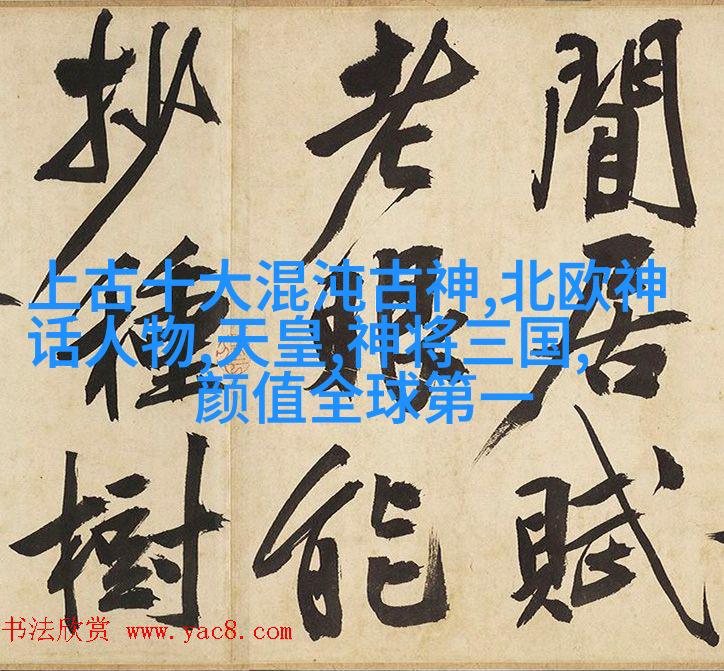 閒居賦
老眼能
抄種樹
上古十大混沌古神,北欧神
话人物,天皇,神将三国,
颜值全球第一
书法欣赏 www.yac8.com